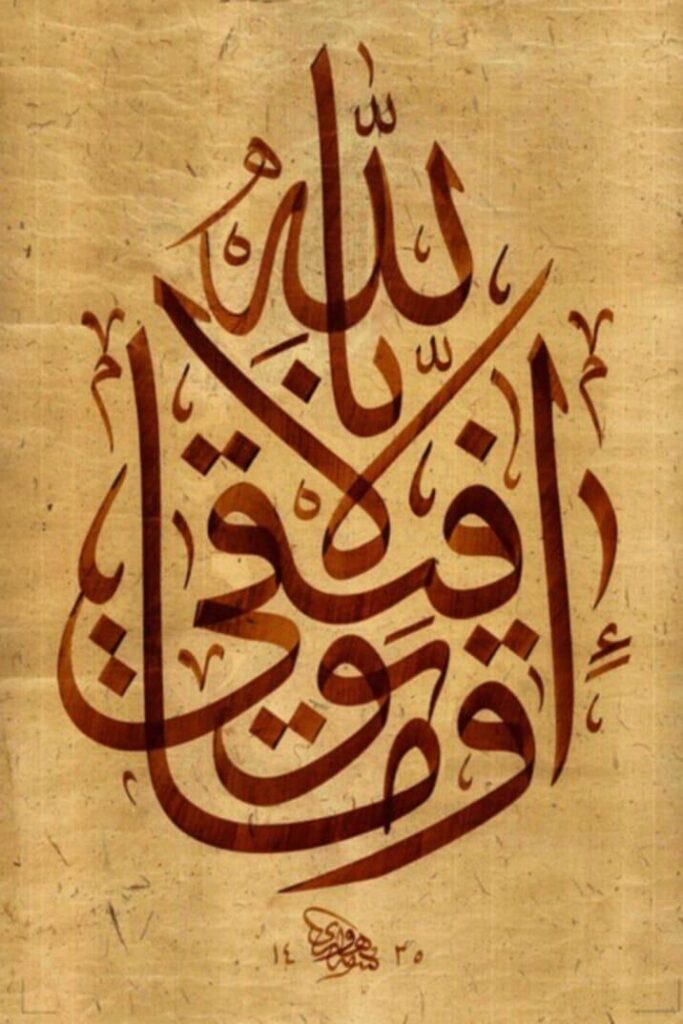 وَمَا تَوْفِيقِي إِلَّا بِاللَّهِ
١٤ ٣٥